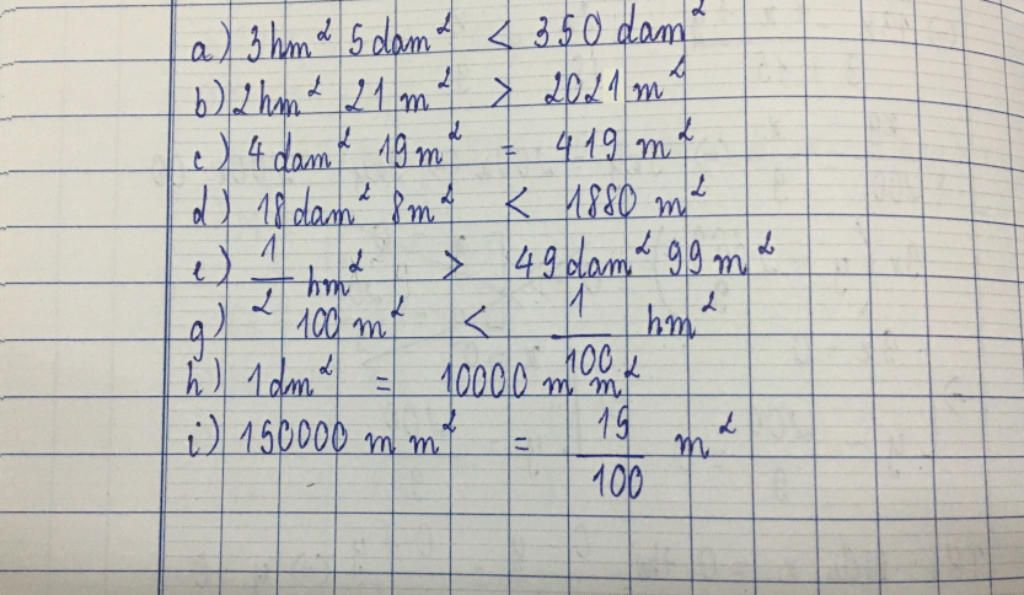 a) 3hm² 5dam² < 350 dam²
b) 2hm² 21 m² > 2021 m²
c) 4 dam² 19m² = 419 m²
d) 18 dam² 8m² < 1880 m²
e) 1/2 hm² > 49 dam² 99 m²
g) 100 m² < 1/100 hm²
h) 1dm² = 10000 m m²
i) 150000 m m² = 15/100 m²